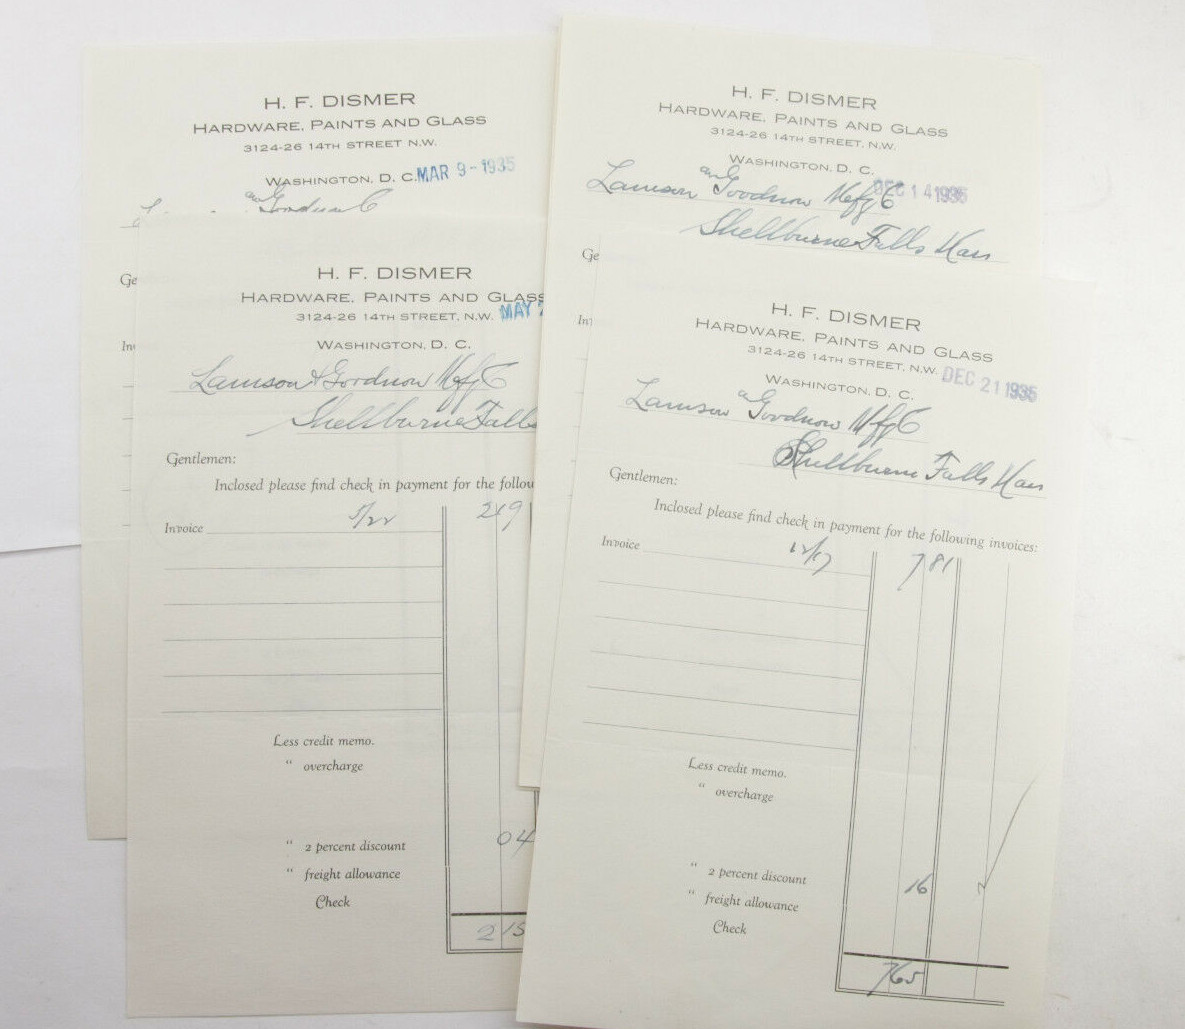 H. F. DISMER
HARDWARE, PAINTS AND GLASS
3124-26 14TH STREET N.W.
WASHINGTON, D. C. MAR 9-1935
Ge
In
H. F. DISMER
HARDWARE, PAINTS AND GLASS
3124-26 14TH STREET, N.W. MAY 2
WASHINGTON, D. C.
Lamson & Goodnow Mfg C
Shellburne Falls
Gentlemen:
Inclosed please find check in payment for the follow
Invoice 5/22 2 19
Less credit memo.
" overcharge
" 2 percent discount 04
" freight allowance
Check
2 15
H. F. DISMER
HARDWARE, PAINTS AND GLASS
3124-26 14TH STREET, N.W.
WASHINGTON, D. C.
DEC 14 1935
Lamson an Goodnow Mefg C
Shellburne Falls Mass
Ge
In
H. F. DISMER
HARDWARE, PAINTS AND GLASS
3124-26 14TH STREET, N.W.
WASHINGTON, D. C. DEC 21 1935
Lamson a Goodnow Mfg C
Shellburne Falls Mass
Gentlemen:
Inclosed please find check in payment for the following invoices:
Invoice 12/17 7 81
Less credit memo.
" overcharge
" 2 percent discount
" freight allowance 16
Check
7 65